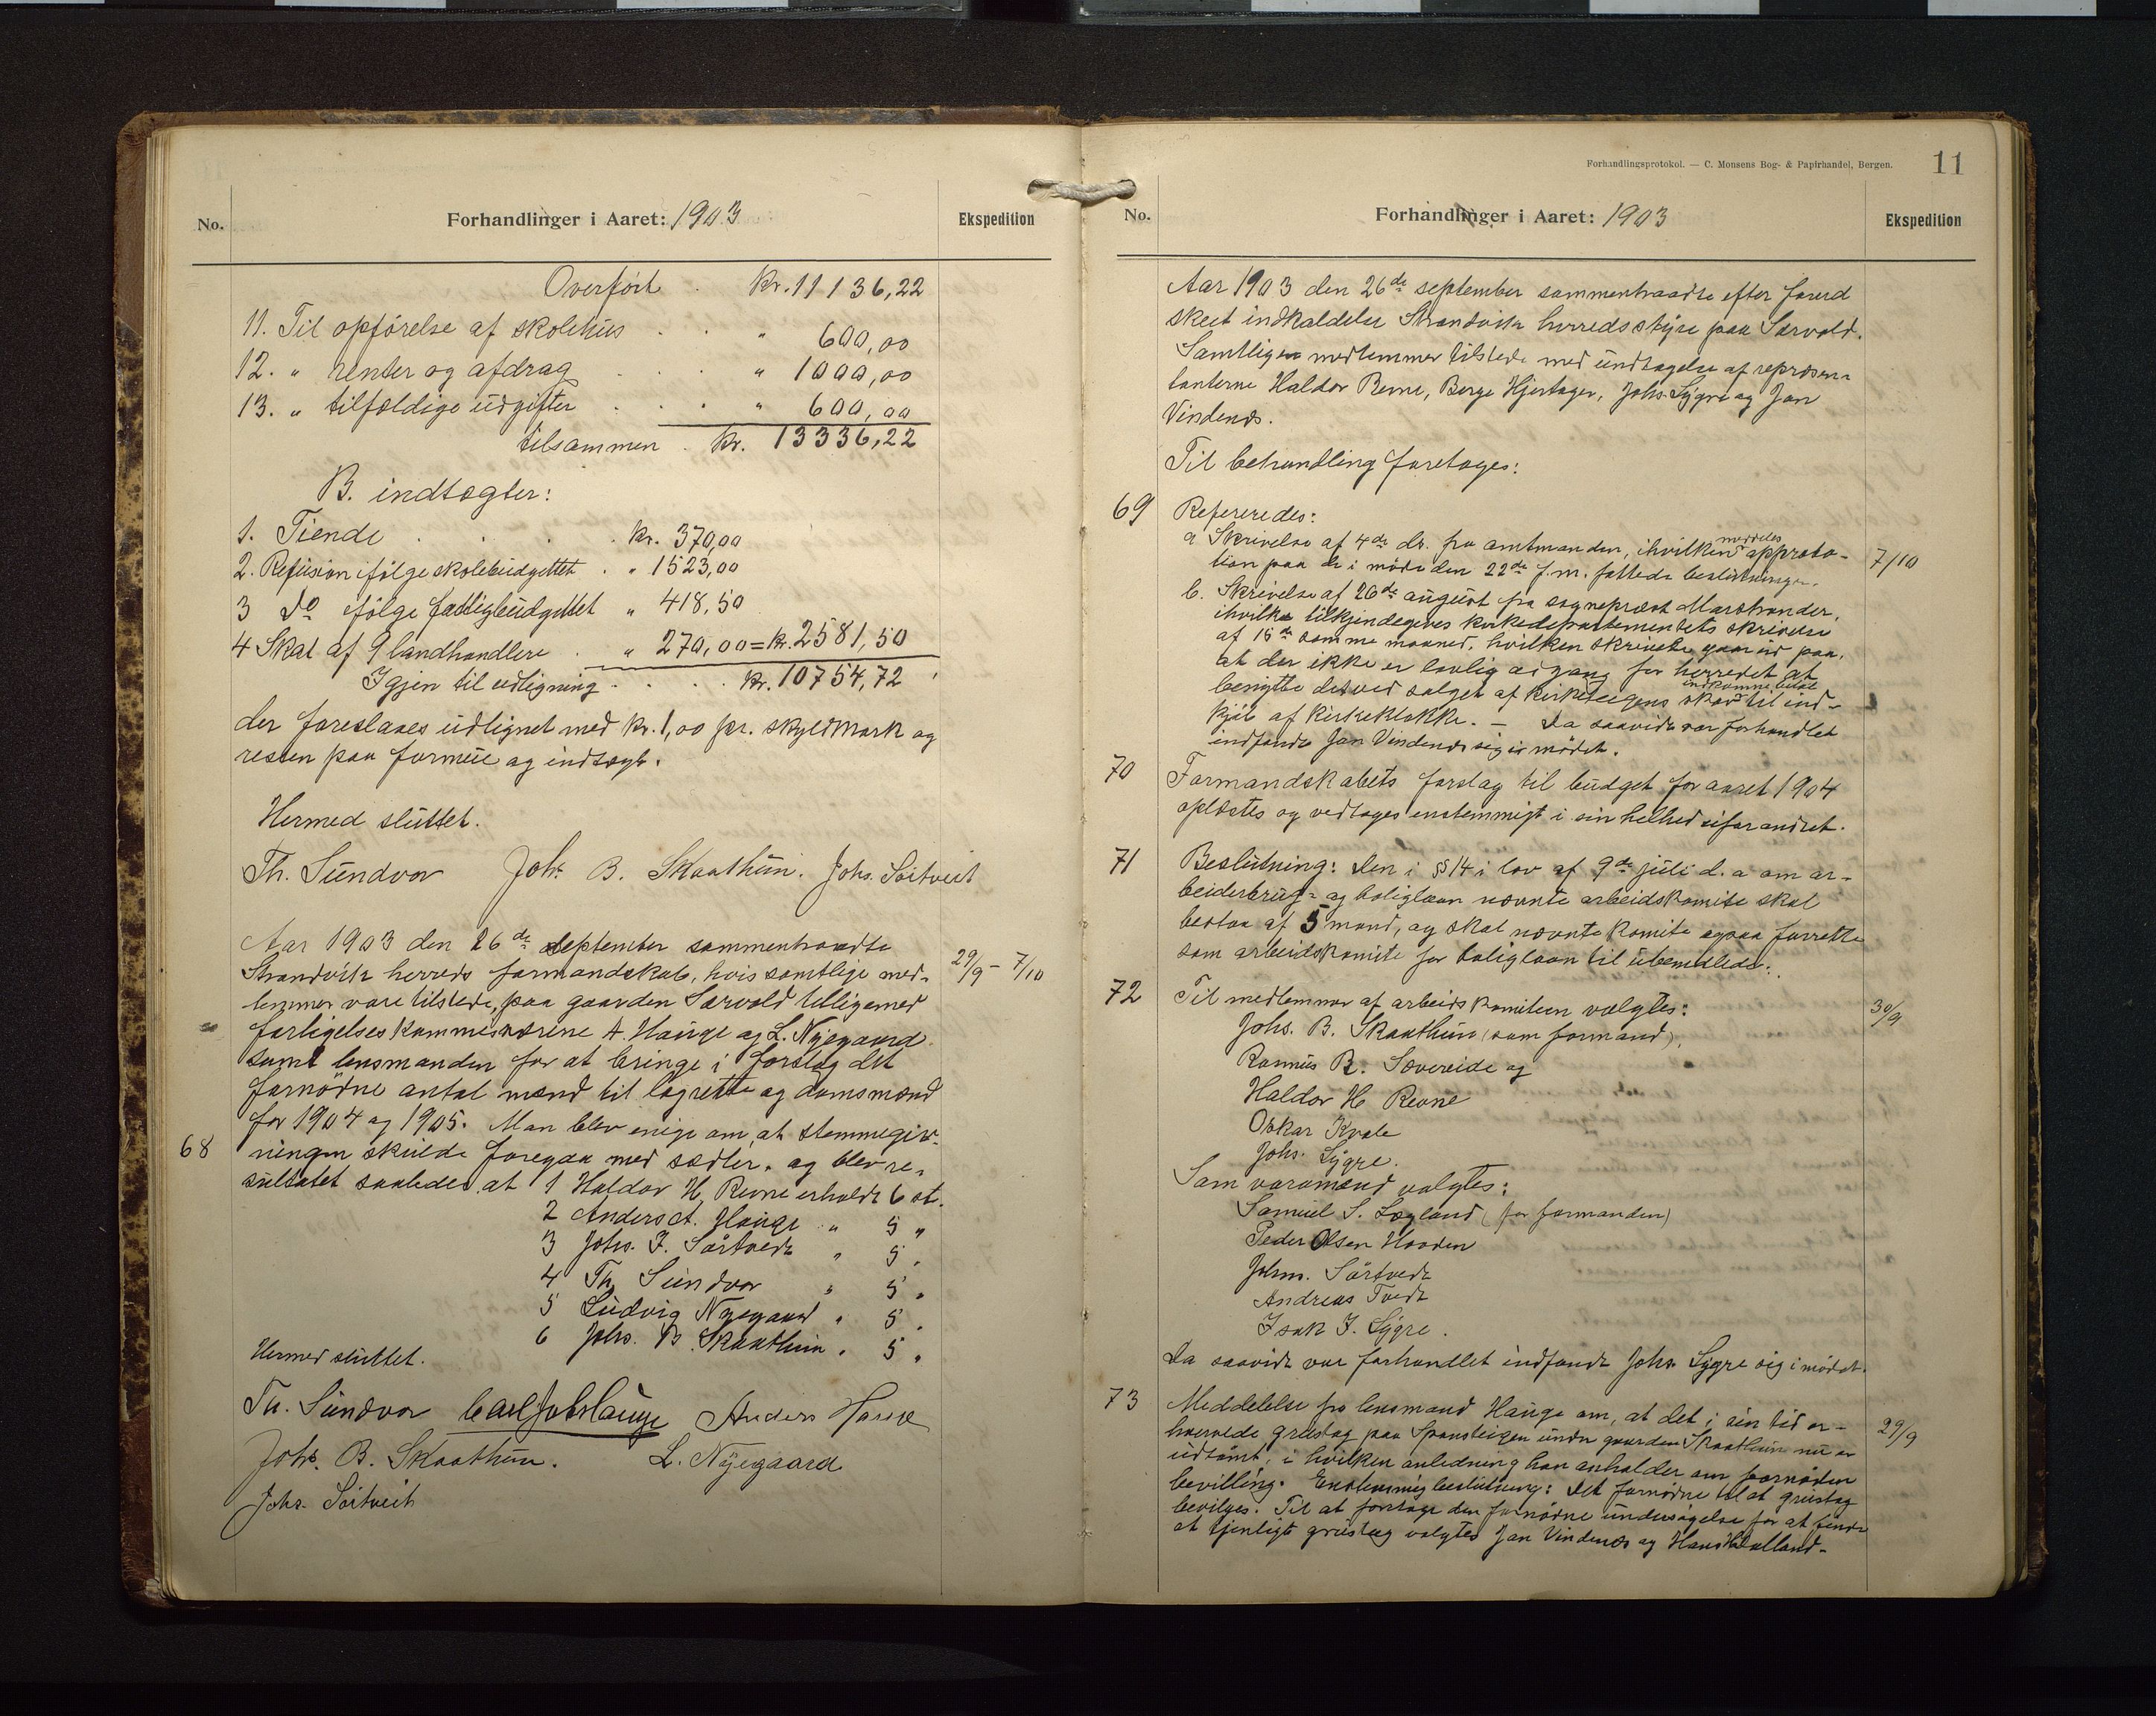 No.
Forhandlinger i Aaret: 1903
Ekspedition
Overført . Kr. 11136,22
11. Til opførelse af skolehus . . " 600,00
12. " renter og afdrag . . . " 1000,00
13. " tilfældige udgifter . . . " 600,00
tilsammen . Kr. 13336,22
B. indtægter:
1. Tiende . . . . Kr. 370,00
2. Refusion ifølge skolebudgettet . " 1523,00
3 Do ifølge fattigbudgettet " 418,50
4 Skat af 9 landhandlere . " 270,00 = Kr. 2581,50
Igjen til udligning . . . . Kr. 10754,72
der foreslaaes udlignet med Kr. 1,00 pr. skyldmark og
resten paa formue og indtægt.
Hermed sluttet.
Th. Sundvor Johs. B. Skaathun. Johs. Søitveit
Aar 1903 den 26de september sammentraadte
Strandvik herreds formandskab, hvis samtlige med-
lemmer vare tilstede, paa gaarden Sævold tilligemed
forligelseskommissærene A. Hauge og L. Nygaard
samt lensmanden for at bringe i forslag det
fornødne antal mænd til lagrette og domsmænd
for 1904 og 1905. Man blev enige om, at stemmegiv-
68 ningen skulde foregaa med sedler, og blev re-
sultatet saaledes, at 1 Haldor H. Revne erholdt 6 st.
2 Anders A. Hauge " 5 "
3 Johs. J. Søitvedt " 5 "
4 Th. Sundvor " 5 "
5 Ludvig Nygaard " 5 "
6 Johs. B. Skaathun " 5 "
29/9 - 7/10
Hermed sluttet.
Th. Sundvor Carl Johs Lange Anders Hauge
Johs. B. Skaathun. L. Nygaard
Johs. Søitveit
Forhandlingsprotokol. — C. Monsens Bog- & Papirhandel, Bergen.
11
No.
Forhandlinger i Aaret: 1903
Ekspedition
Aar 1903 den 26de september sammentraadte efter forud
skeet indkaldelse Strandvik herredsstyre paa Sævold.
Samtlige medlemmer tilstede med undtagelse af repræsen-
tanterne Haldor Revne, Berge Hjertager, Johs. Lygre og Jan
Vindenæs.
Til behandling foretoges:
69 Refereredes:
a Skrivelse af 4de ds. fra amtmanden, ihvilken meddeles approba-
tion paa de i møde den 22de f.m. fattede beslutninger. 7/10
b. Skrivelse af 26de august fra sogneprest Marstrander,
ihvilke tilkjendegives kirkedepartementets skrivelse
af 15de samme maaned, hvilken skrivelse gaar ud paa,
at der ikke er lovlig adgang for herredet at
benytte det ved salget af kirketeigens skov indkomne beløb til ind-
kjøb af kirkeklokke. — Da saavidt var forhandlet
indfandt Jan Vindenæs sig i mødet.
70 Formandskabets forslag til budget for aaret 1904
oplæstes og vedtoges enstemmigt i sin helhed uforandret.
71 Beslutning: Den i §14 i lov af 9de juli d. a om ar-
beiderbrug- og boliglaan nævnte arbeidskomite skal
bestaa af 5 mand, og skal nævnte komite ogsaa forrette
som arbeidskomite for boliglaan til ubemidlede.
72 Til medlemmer af arbeidskomiteen valgtes: 30/9
Johs. B. Skaathun (som formand),
Rasmus R. Sævereide og
Haldor H Revne
Oskar Kvale
Johs. Lygre.
Som varamænd valgtes:
Samuel S. Løgland (for formanden)
Peder Olsen Haaden
Johs. Søitvedt
Andreas Tvedt
Isak I. Lygre.
Da saavidt var forhandlet indfandt Johs. Lygre sig i mødet.
73 Meddelelse fra lensmand Hauge om, at det i sin tid er-
hvervede grustag paa Spansteigen under gaarden Skaathun nu er 29/9
udtømt, i hvilken anledning han anholder om fornøden
bevilling. Enstemmig beslutning: Det fornødne til et grustag
bevilges. Til at foretage den fornødne undersøgelse for at finde
et tjenligt grustag valgtes Jan Vindenæs og Hans